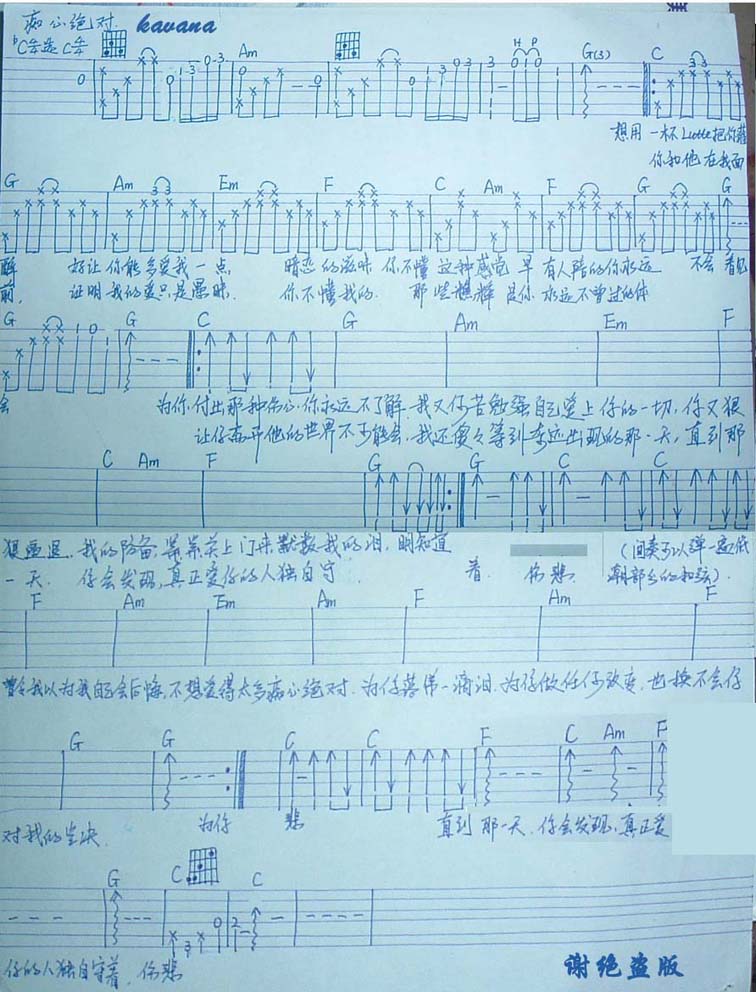 痴心绝对 kavana
♭C调选C调
Am G(3) C
H P
想用一杯Latte把你灌
你和他在我面
G Am Em F C Am F G G
醉 好让你能多爱我一点 暗恋的滋味 你不懂 这种感觉 早有人陪的你永远 不会 看你
前 证明我的爱只是愚昧 你不懂我的 那些憔悴 是你永远不曾过的体
G G C G Am Em F
会 为你付出那种伤心你永远不了解 我又何苦勉强自己爱上你的一切 你又狠
让你离开他的世界不可能会 我还傻々等到奇迹出现的那一天 直到那
C Am F G G C C
狠逼退 我的防备 静静关上门来默数我的泪 明知道
一天 你会发现 真正爱你的人独自守 着 伤悲
(间奏可以弹一遍低
潮部分的和弦)
F Am Em Am F Am F
曾经我以为我自己会后悔 不想爱得太多痴心绝对 为你落第一滴泪 为你做任何改变 也换不会你
G G C C F C Am F
对我的坚决 为你 悲 直到那一天 你会发现 真正爱
G C C
你的人独自守着 伤悲
谢绝盗版